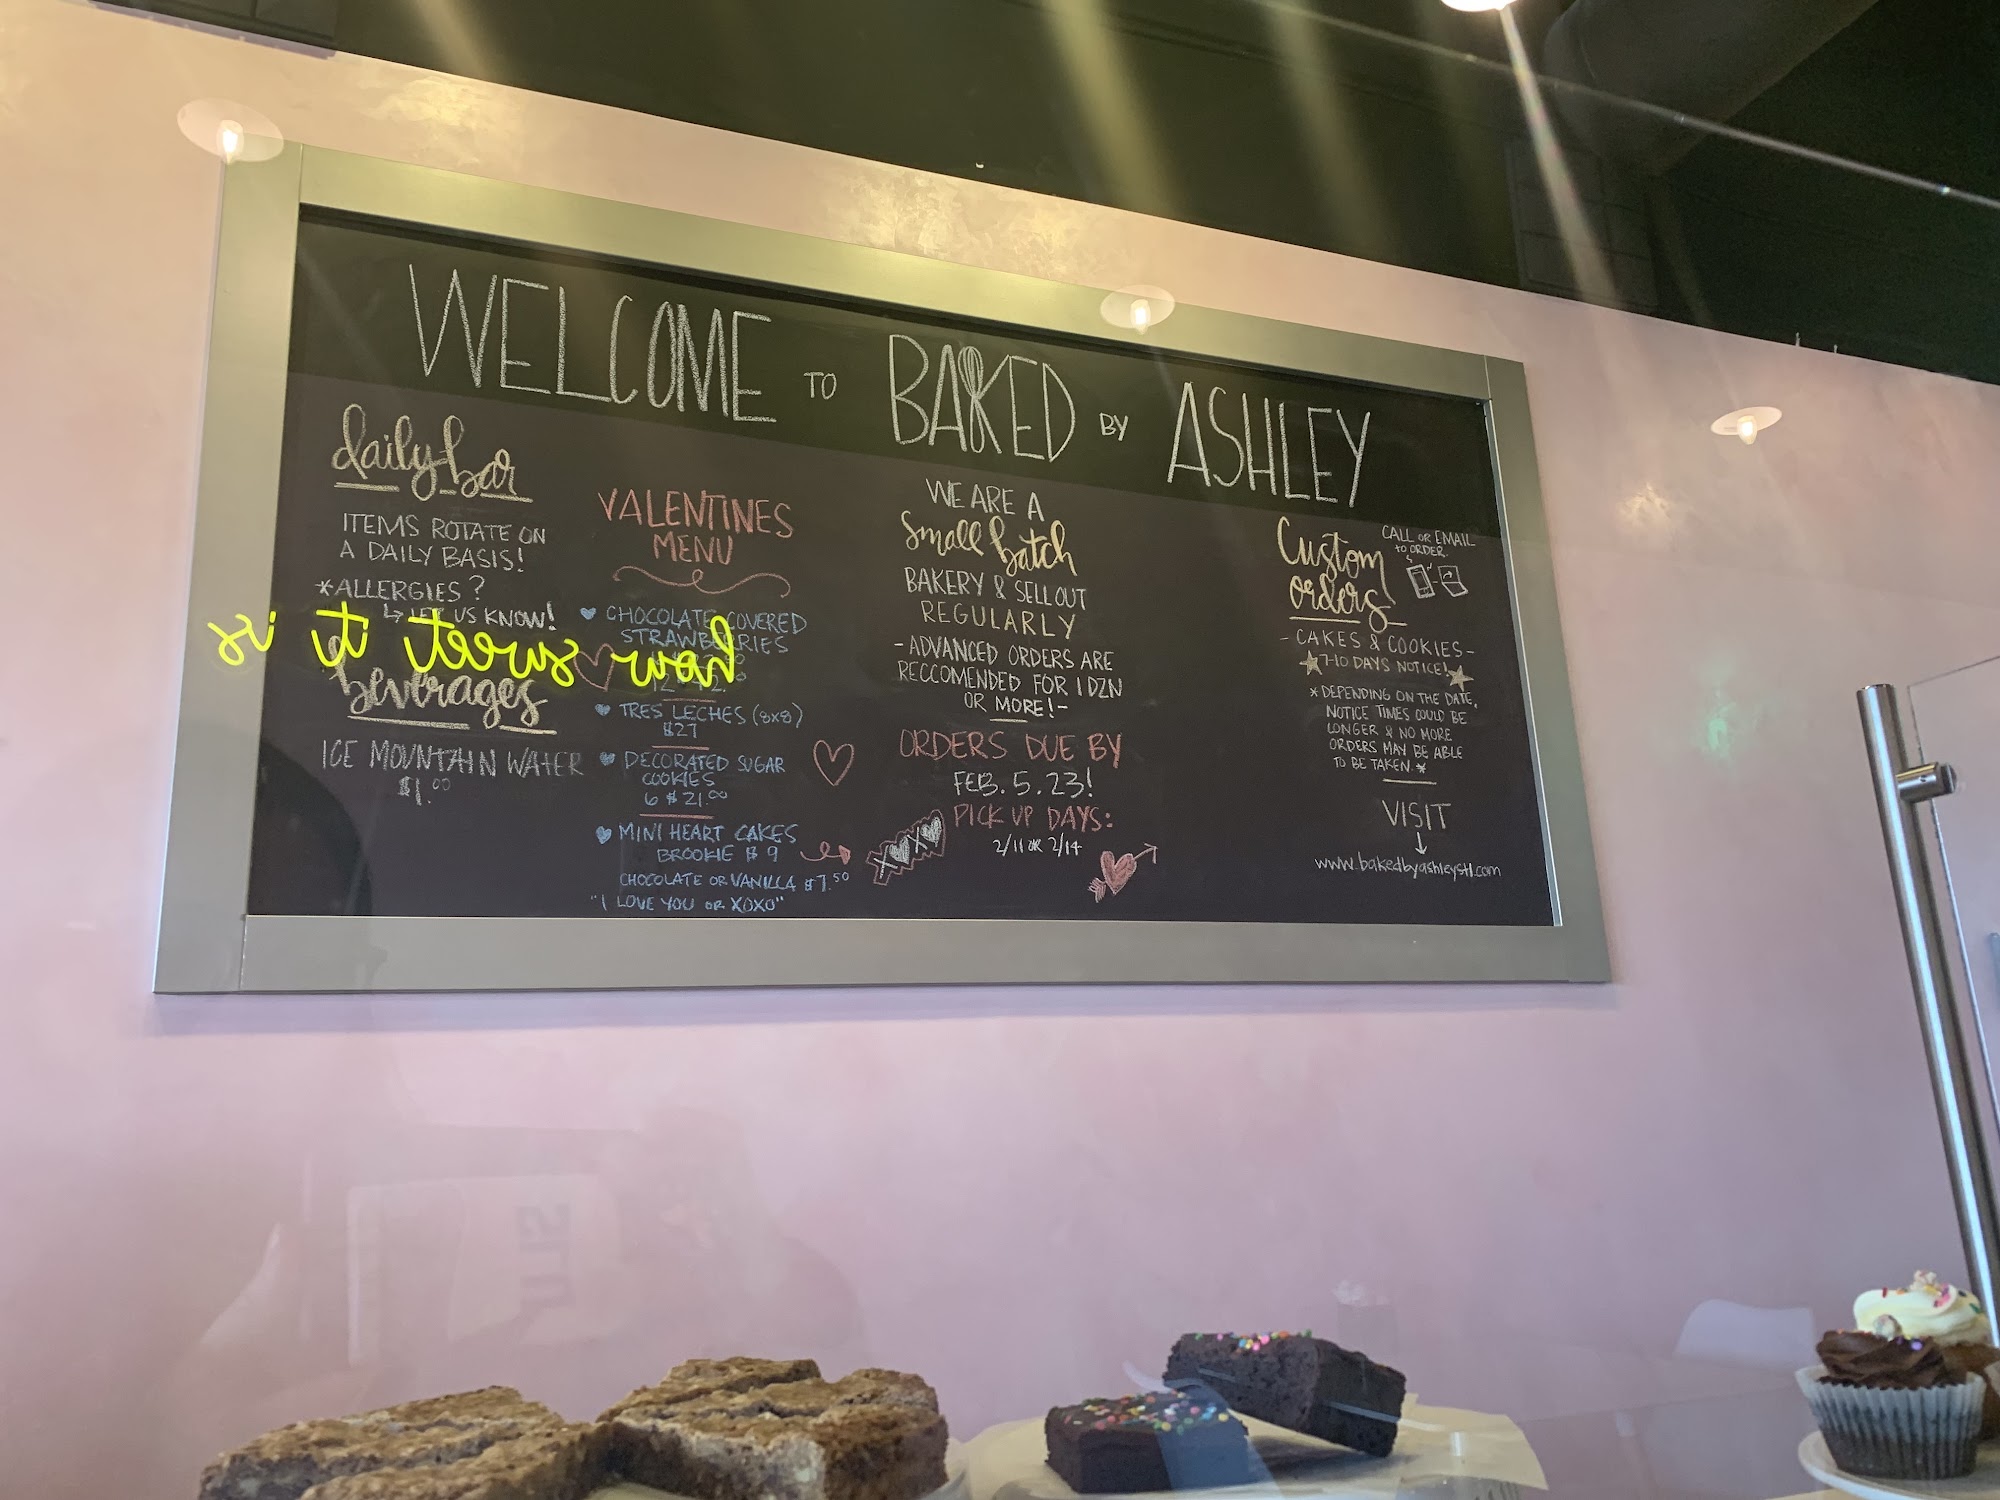 WELCOME TO BAKED BY ASHLEY
daily bar
ITEMS ROTATE ON
A DAILY BASIS!
*ALLERGIES?
↳ LET US KNOW!
how sweet it is
beverages
ICE MOUNTAIN WATER
$1.00
VALENTINES
MENU
CHOCOLATE COVERED
STRAWBERRIES
TRES LECHES (8x8)
$27
DECORATED SUGAR
COOKIES
6 $21.00
MINI HEART CAKES
BROOKIE $9
CHOCOLATE OR VANILLA $7.50
"I LOVE YOU OR XOXO"
WE ARE A
small batch
BAKERY & SELLOUT
REGULARLY
-ADVANCED ORDERS ARE
RECCOMENDED FOR 1 DZN
OR MORE!-
ORDERS DUE BY
FEB. 5. 23!
PICK UP DAYS:
2/11 OR 2/14
XOXO
Custom
orders
CALL OR EMAIL
to ORDER.
-CAKES & COOKIES-
7-10 DAYS NOTICE!
*DEPENDING ON THE DATE,
NOTICE TIMES COULD BE
LONGER & NO MORE
ORDERS MAY BE ABLE
TO BE TAKEN.*
VISIT
www.bakedbyashleystl.com